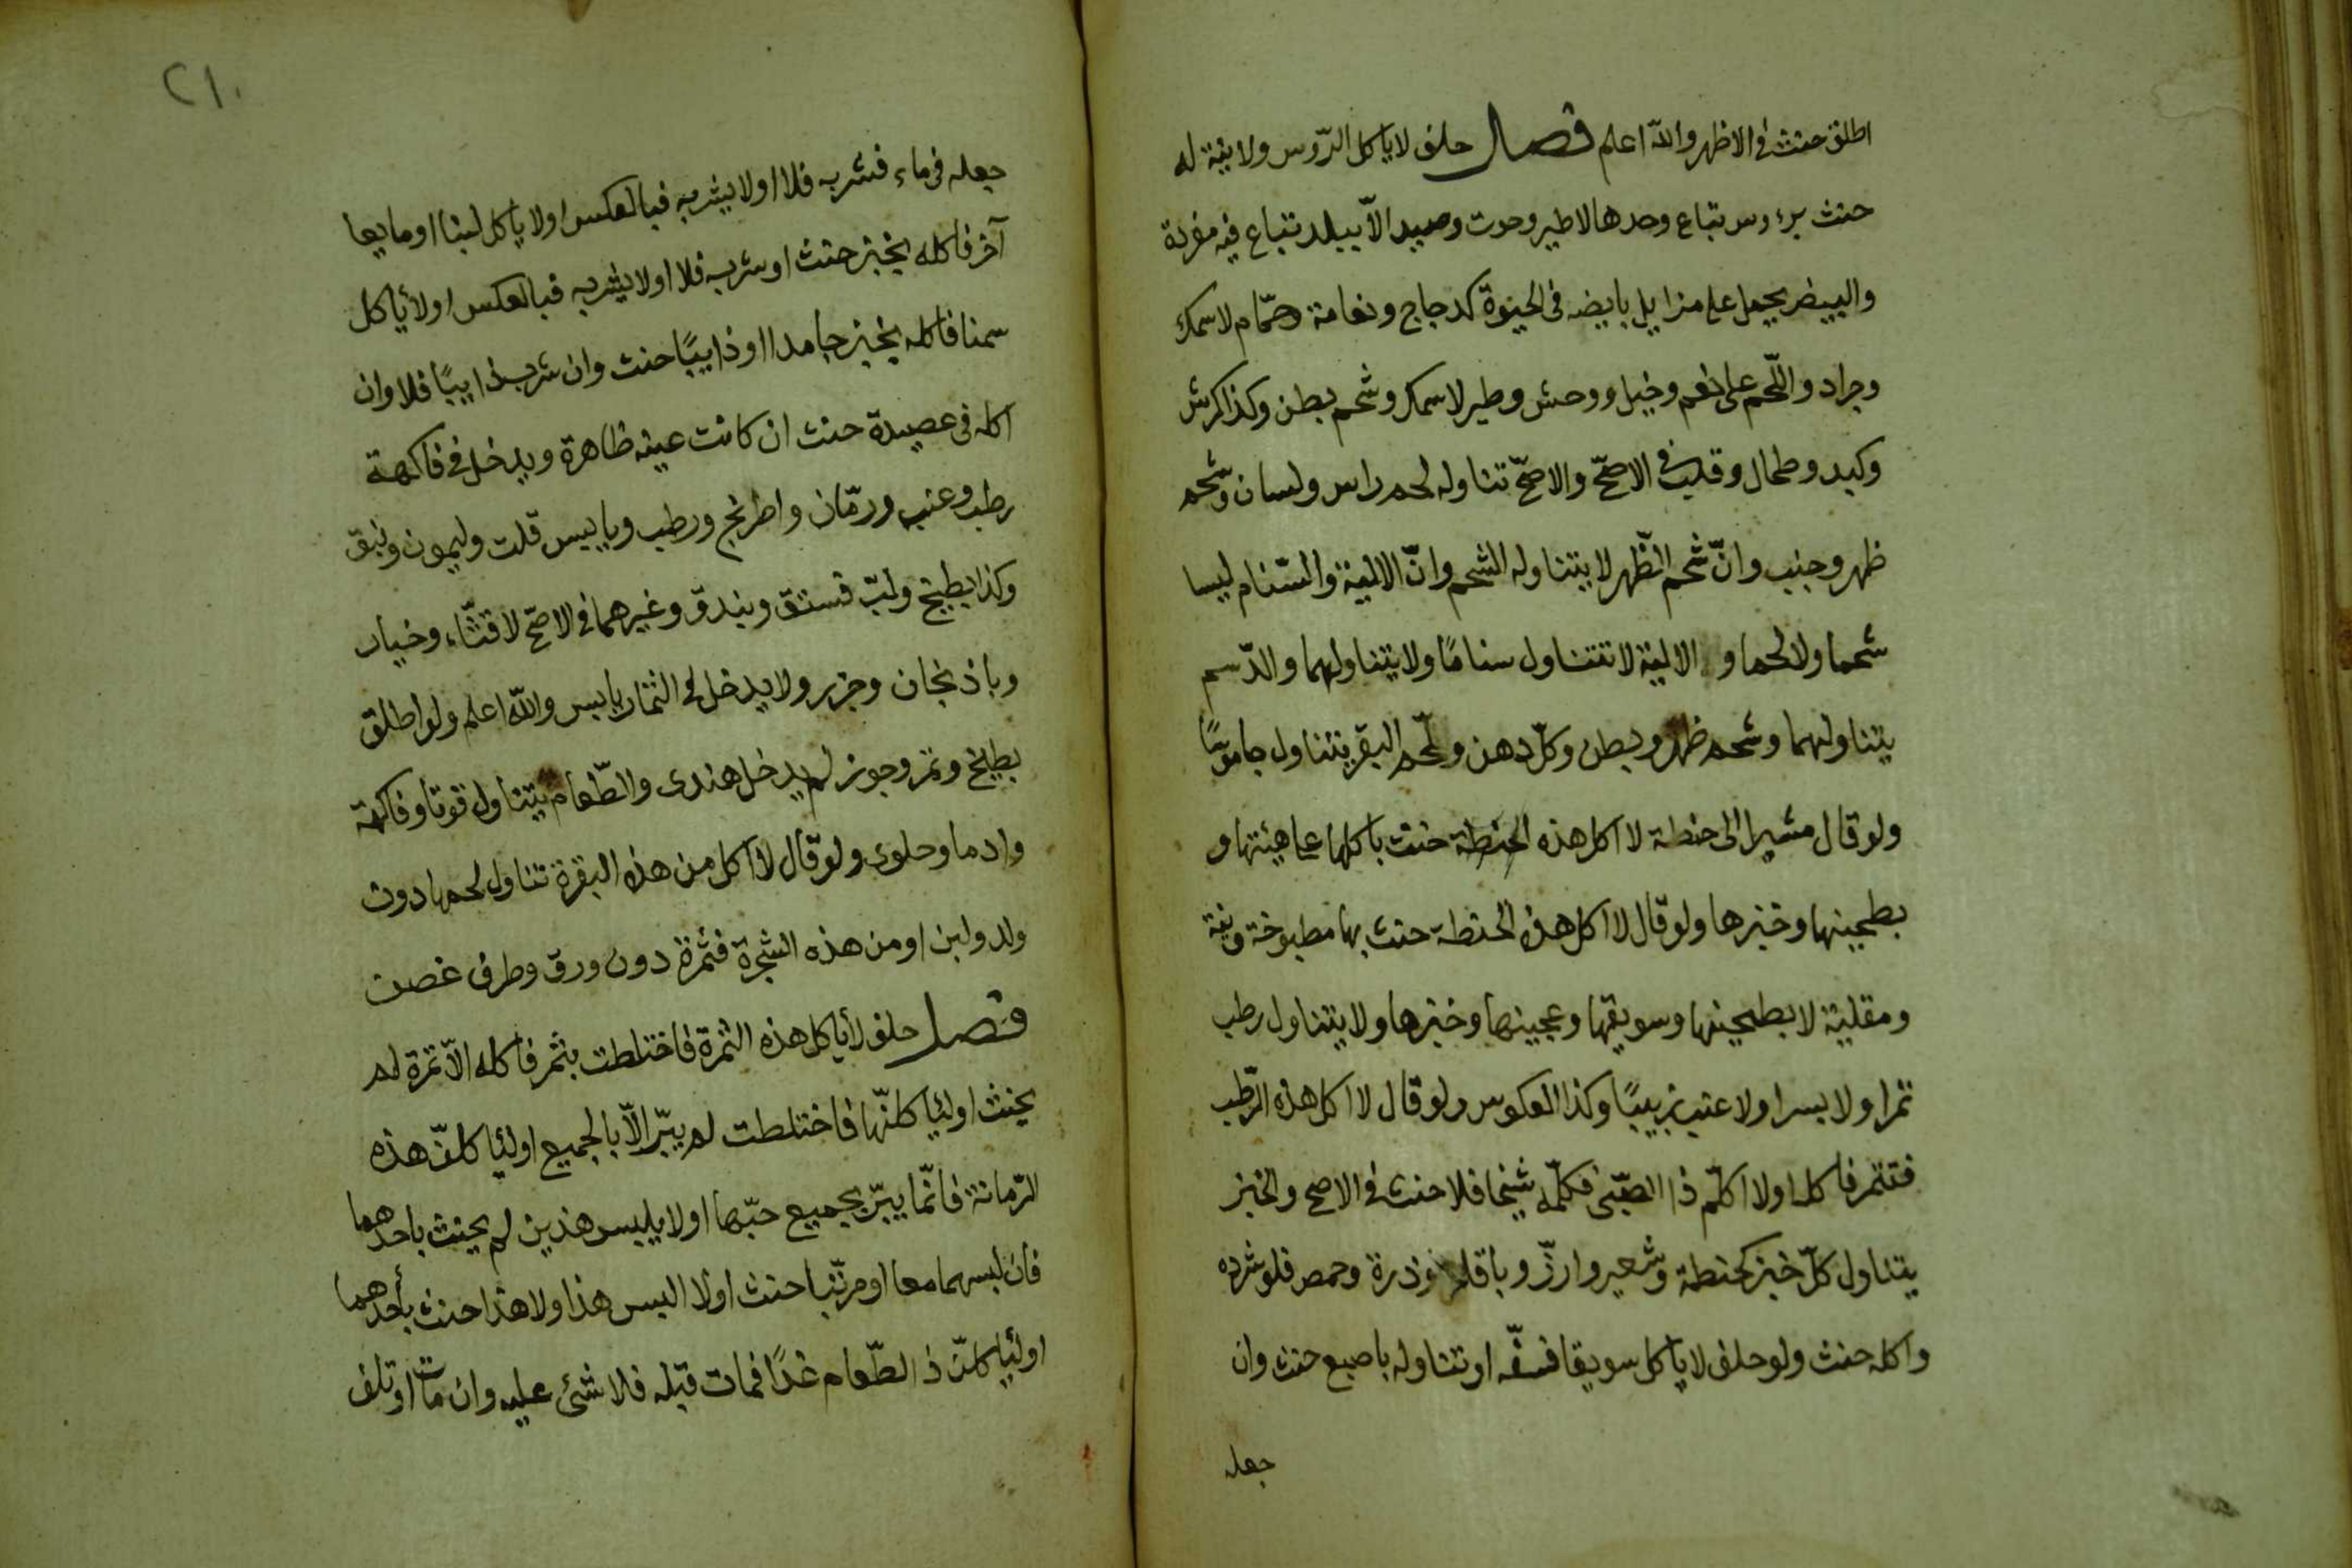 اطلق حنث في الاظهر والله اعلم فصل حلف لا ياكل الرّوس ولا نية له
حنث برءوس تباع وحدها لا طير وحوت وصيد الاّ ببلد تباع فيه مفردة
والبيض يحمل على مزايل بايضه في الحيوة كدجاج ونعامة وحمّام لا سمك
وجراد واللّحم على نعم وخيل ووحش وطير لا سمك وشحم بطن وكذا كرش
وكبد وطحال وقلب في الاصحّ والاصحّ تناوله لحم راس ولسان وشحم
ظهر وجنب وانّ شحم الظّهر لا يتناوله الشحم وانّ الالية والسّنام ليسا
شحما ولا لحما و الالية لا تتناول سنامًا ولا يتناولهما والدّسم
يتناولهما وشحم ظهر وبطن وكلّ دهن ولحم البقر يتناول جاموسًا
ولو قال مشيرا الى حنطة لا اكل هذه الحنطة حنث باكلها على هيئتها و
بطحينها وخبزها ولو قال لا اكل هذه الحنطة حنث بها مطبوخة ونية
ومقلية لا بطحينها وسويقها وعجينها وخبزها ولا يتناول رطب
تمرا ولا بسرا ولا عنب زبيبًا وكذا العكوس ولو قال لا اكل هذه الرّطب
فتتمر فاكله او لا اكلّم ذا الصّبى فكلّمه شيخا فلا حنث في الاصح والخبز
يتناول كلّ خبز كحنطة وشعير وارزّ وباقلا وذرة وحمص فلو ثرده
واكله حنث ولو حلف لا ياكل سويقا فسفّه او تناوله باصبع حنث وان
جعله
٢١٠
جعله في ماء فشربه فلا او لا يشربه فبالعكس او لا ياكل لبنا او مايعا
آخر فاكله بخبز حنث او شربه فلا او لا يشربه فبالعكس او لا ياكل
سمنا فاكله بخبز جامدا او ذايبًا حنث وان شرب ذايبًا فلا وان
اكله في عصيدة حنث ان كانت عينه ظاهرة ويدخل في فاكهة
رطب وعنب ورمّان واطرنج ورطب ويابيس قلت وليمون ونبق
وكذا بطيخ ولبّ فستق وبندق وغيرهما في الاصحّ لا قثّاء وخيار
وباذنجان وجزر ولا يدخل في الثمار يابس والله اعلم ولو اطلق
بطيخ وتمر وجوز لم يدخل هندى والطّعام يتناول قوتا وفاكهة
وادما وحلوى ولو قال لا اكل من هذه البقرة تناول لحمها دون
ولد ولبن او من هذه الشجرة فثمرة دون ورق وطرف غصن
فصل حلف لا ياكل هذه الثمرة فاختلطت بثمر فاكله الاّ تمرة لم
يحنث او لياكلنّها فاختلطت لم يبرّ الاّ بالجميع او لياكلنّ هذه
الرّمانة فانّما يبرّ بجميع حبّها او لا يلبس هذين لم يحنث باحدهما
فان لبسهما معا او مرتّبا حنث او لا البس هذا ولا هذا حنث بأحدهما
او لياكلنّ ذا الطّعام غدًا فمات قبله فلا شئ عليه وان مات او تلف